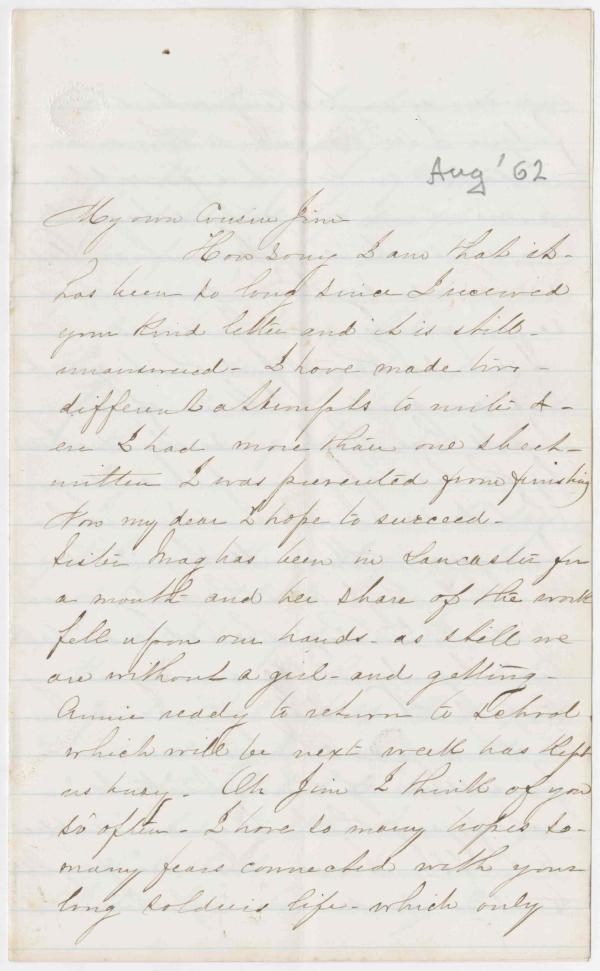 Aug '62
My own Cousin Jim
How sorry I am that it-
has been so long since I received
your kind letter and it is still-
unanswered- I have made two-
different attempts to write &-
ere I had more than one sheet-
written I was prevented from finishing
Now my dear I hope to succeed-
Sister Mag has been in Lancaster for
a month- and her share of the work
fell upon our hands- as still we
are without a girl- and getting-
Annie ready to return to School
which will be next week has kept
us busy- Oh Jim I think of you
so often- I have so many hopes so-
many fears connected with your
long soldiers life- which only